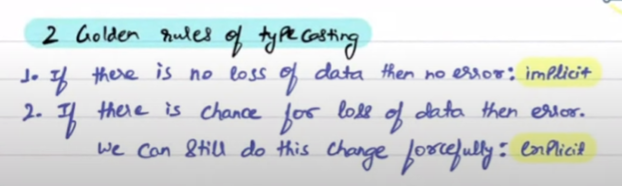 2 Golden rules of type casting
1. If there is no loss of data then no error: implicit
2. If there is chance for loss of data then error.
We can still do this change forcefully: explicit